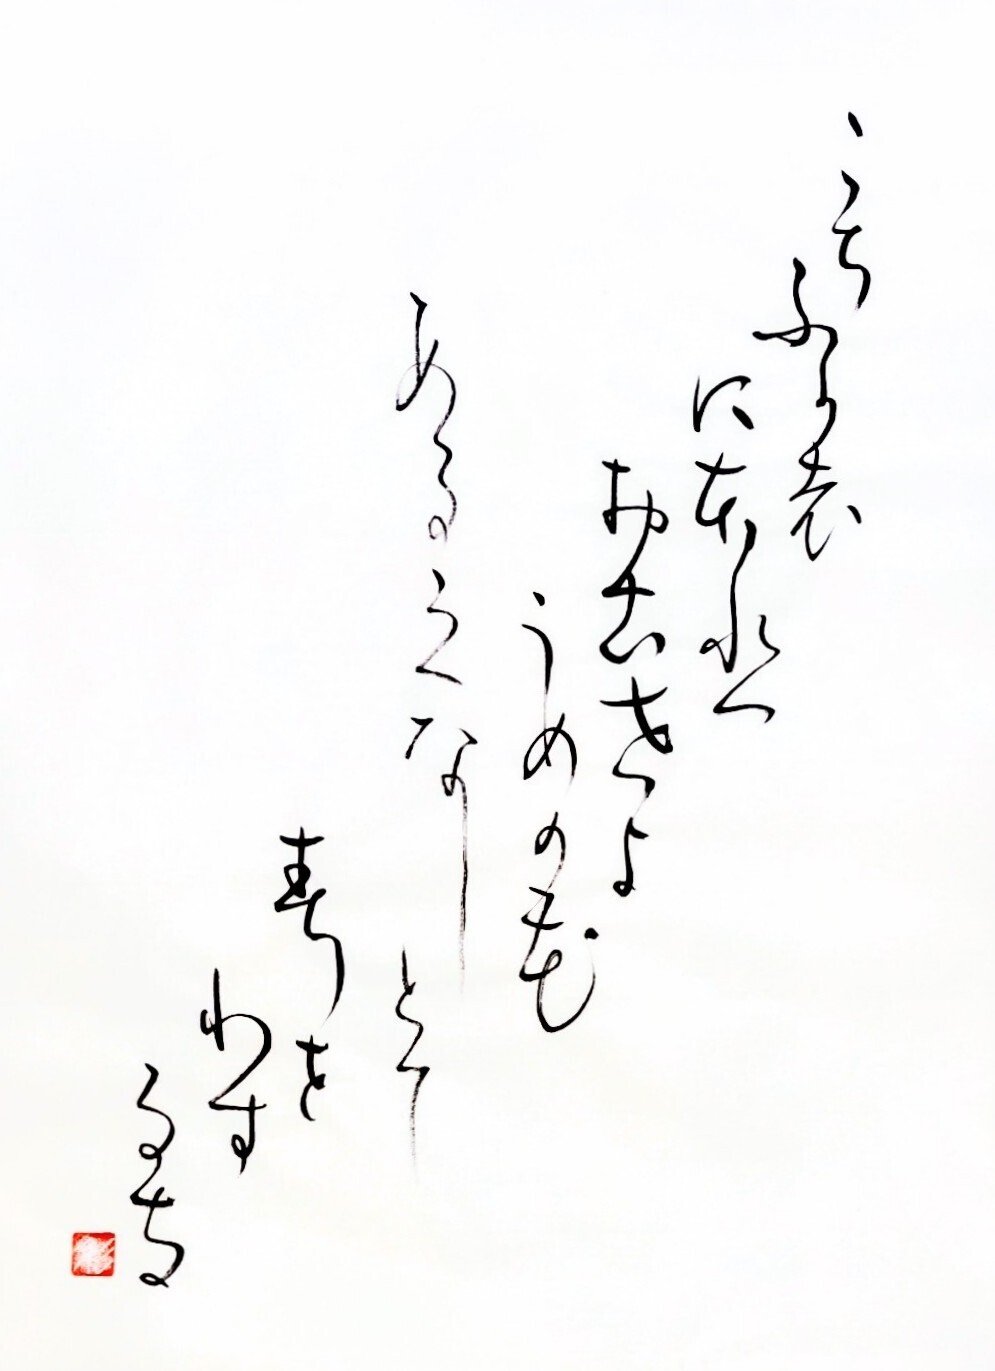 こちふかば
にほひ
おこせよ
うめの花
あるじなしとて
春を
わす
るな